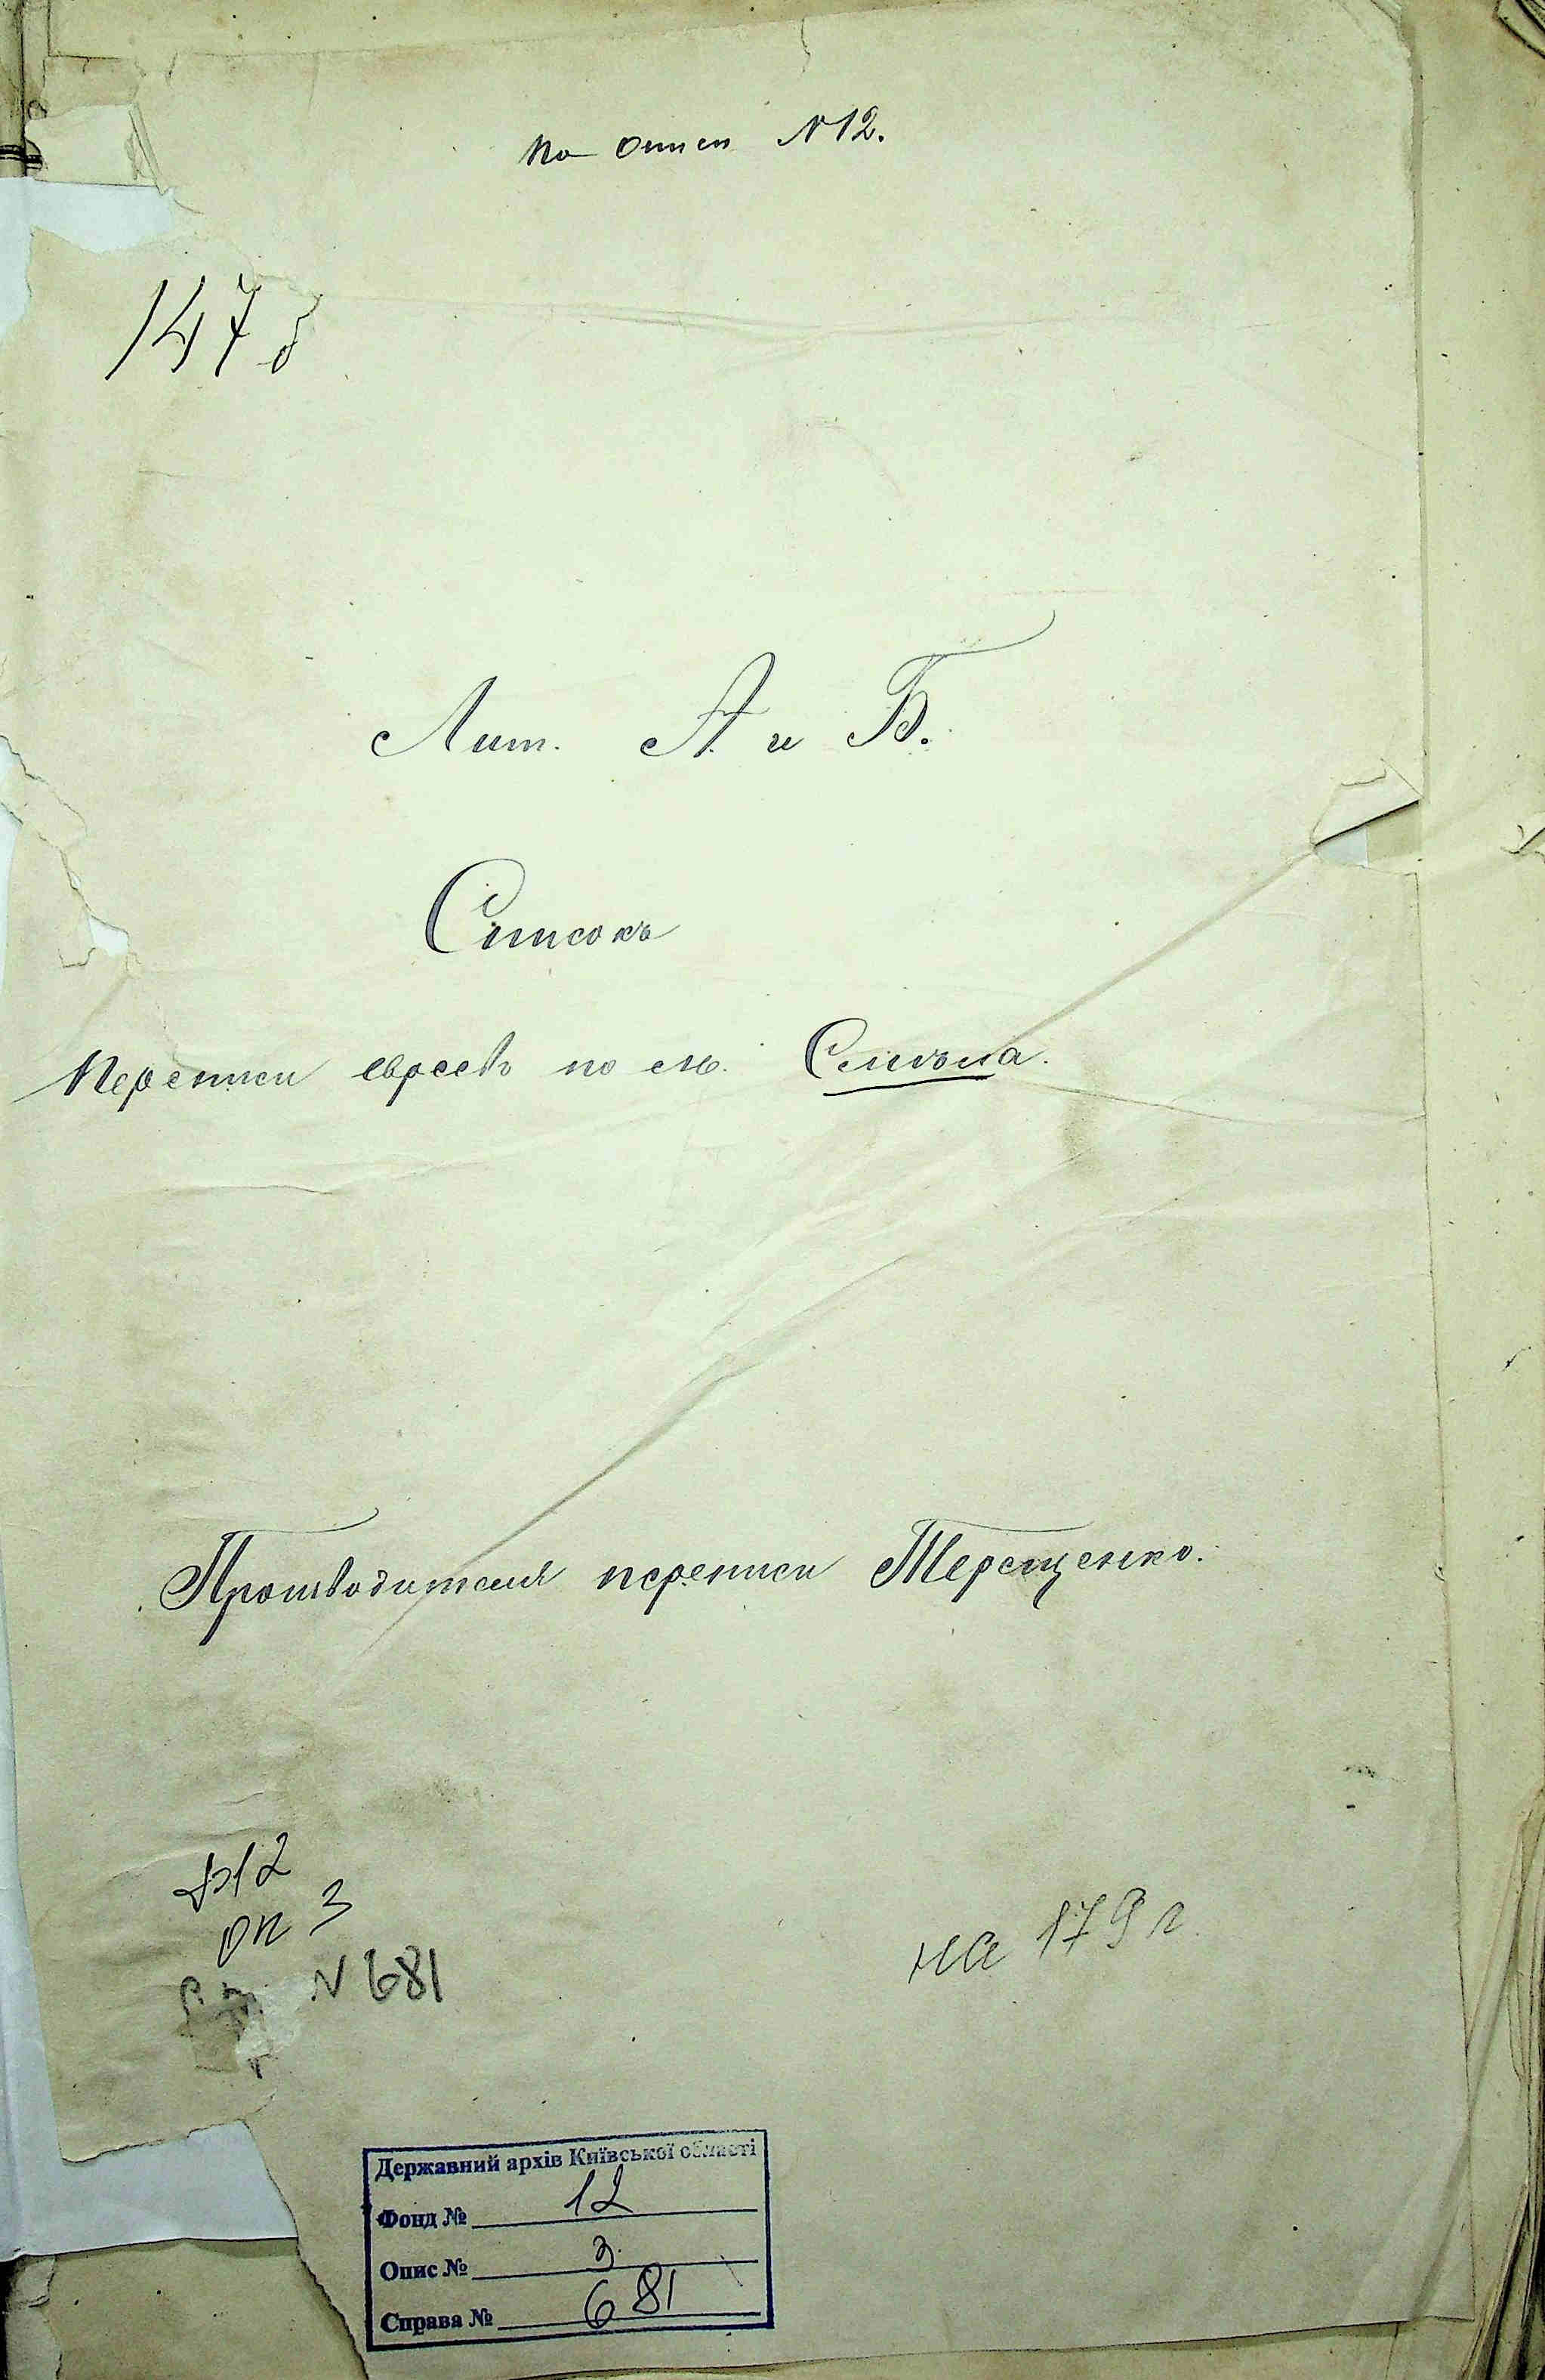 по описи № 12.
147 б
Лит. А и Б.
Списокъ
Переписи евреевъ по м. Смѣла.
Производителя переписи Терещенко.
ф 12
оп 3
N 681
на 179 л.
Державний архів Київської області
Фонд № 12
Опис № 3
Справа № 681